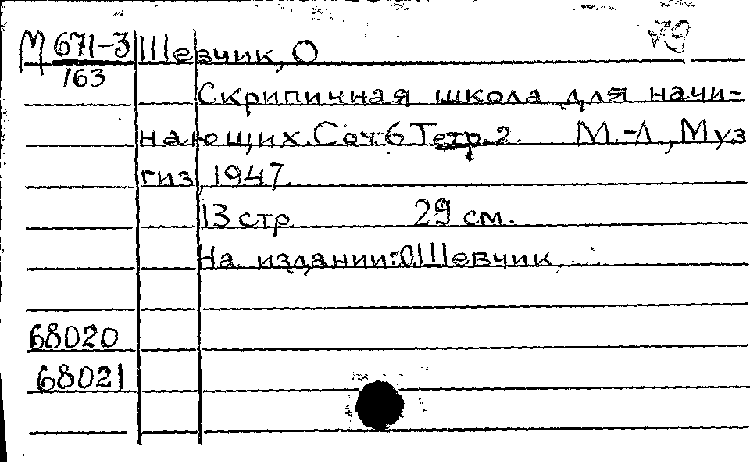 М 671-3 Шевчик, О 79
163
Скрипичная школа для начи-
нающих. Соч. 6 Тетр. 2. М.-Л., Муз
гиз, 1947.
13 стр. 29 см.
На издании: О. Шевчик.
68020
68021